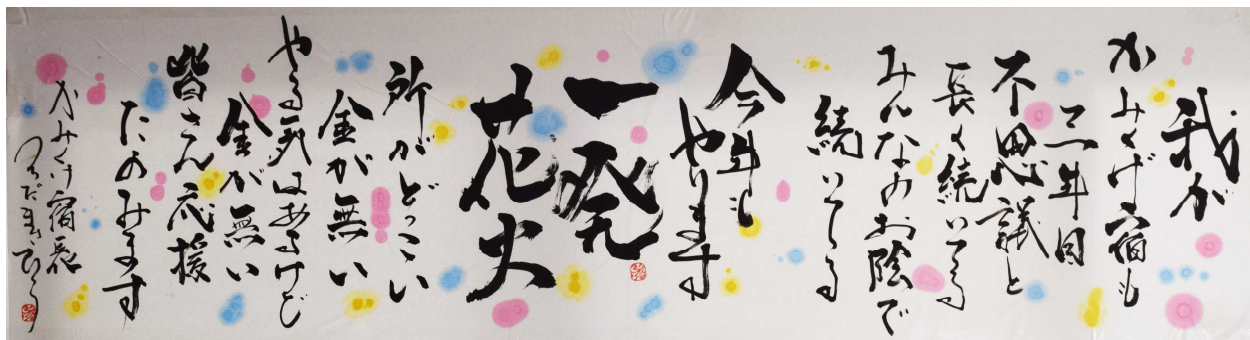 我が
かみくげ宿も
二年目
不思議と
長く続いてる
みんなのお陰で
続いてる
今年も
やります
一発
花火
所がどっこい
金が無い
やる気はあるけど
金が無い
皆さん応援
たのみます
かみくげ宿長